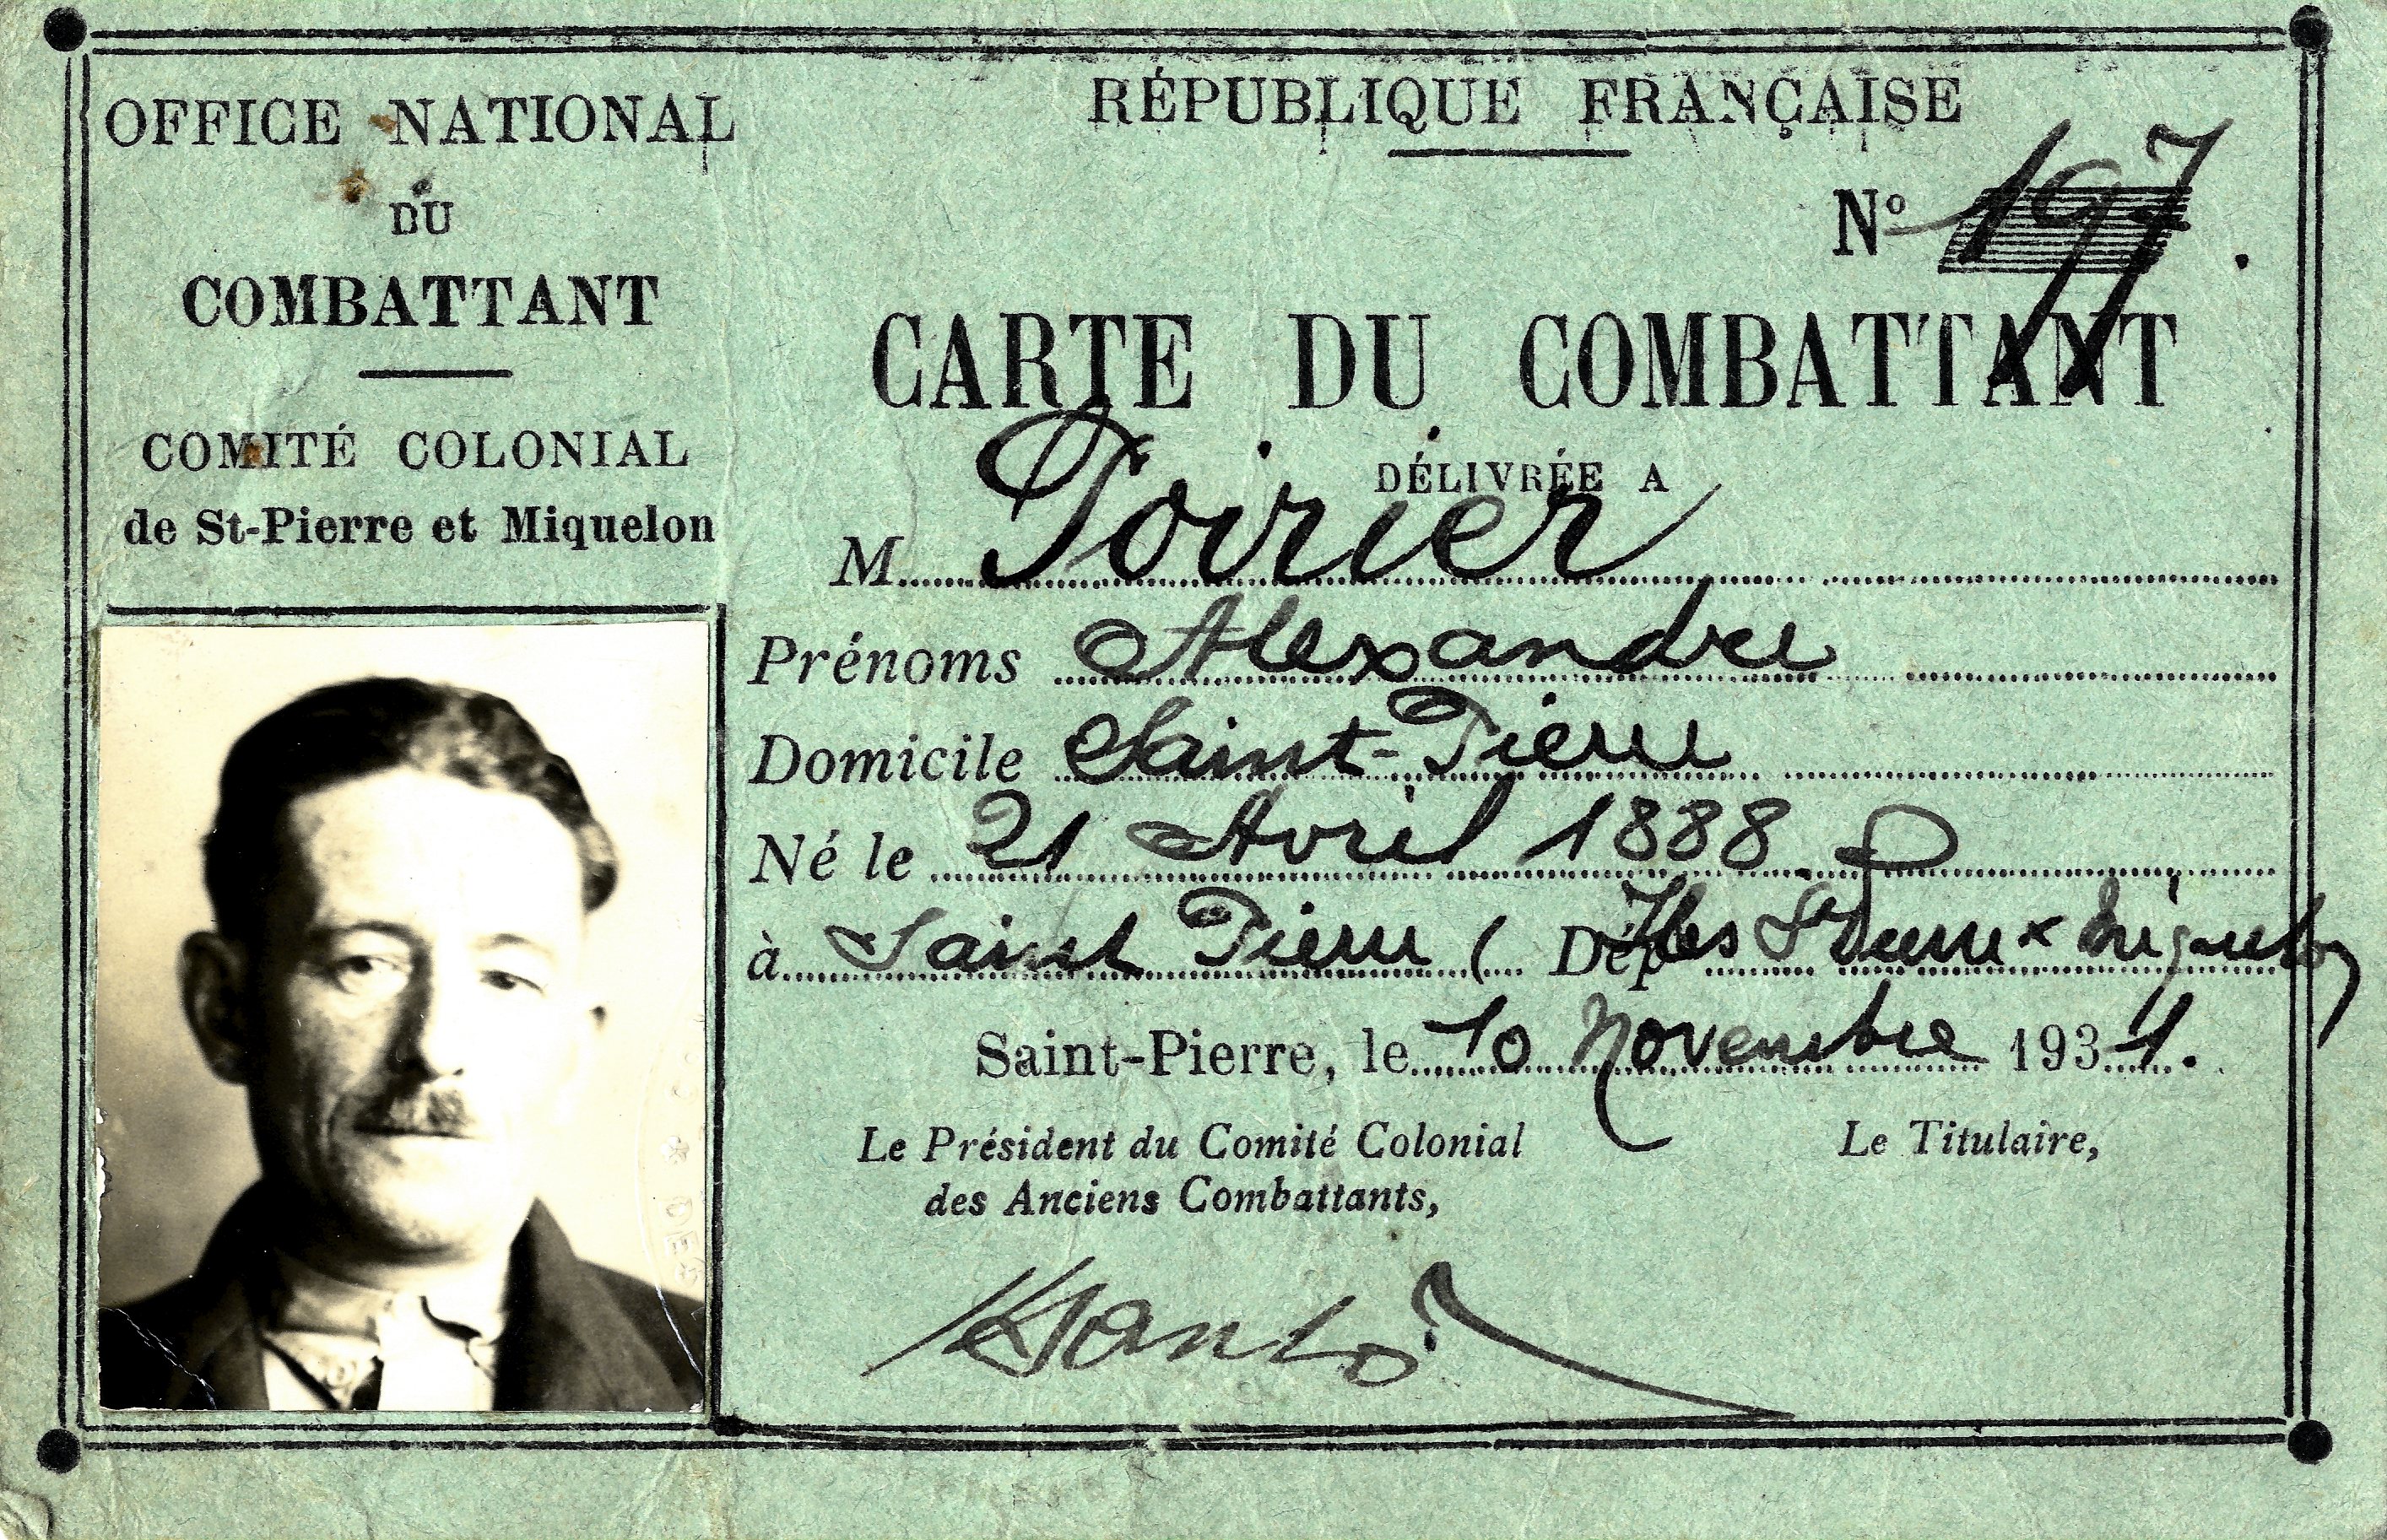 OFFICE NATIONAL
DU
COMBATTANT
COMITÉ COLONIAL
de St-Pierre et Miquelon
RÉPUBLIQUE FRANÇAISE
Nº 197.
CARTE DU COMBATTANT
DÉLIVRÉE A
M. Poirier
Prénoms Alexandre
Domicile Saint-Pierre
Né le 21 Avril 1888
à Saint Pierre ( Dép Iles St Pierre x Miquelon
Saint-Pierre, le 10 Novembre 1931.
Le Président du Comité Colonial
des Anciens Combattants,
Le Titulaire,